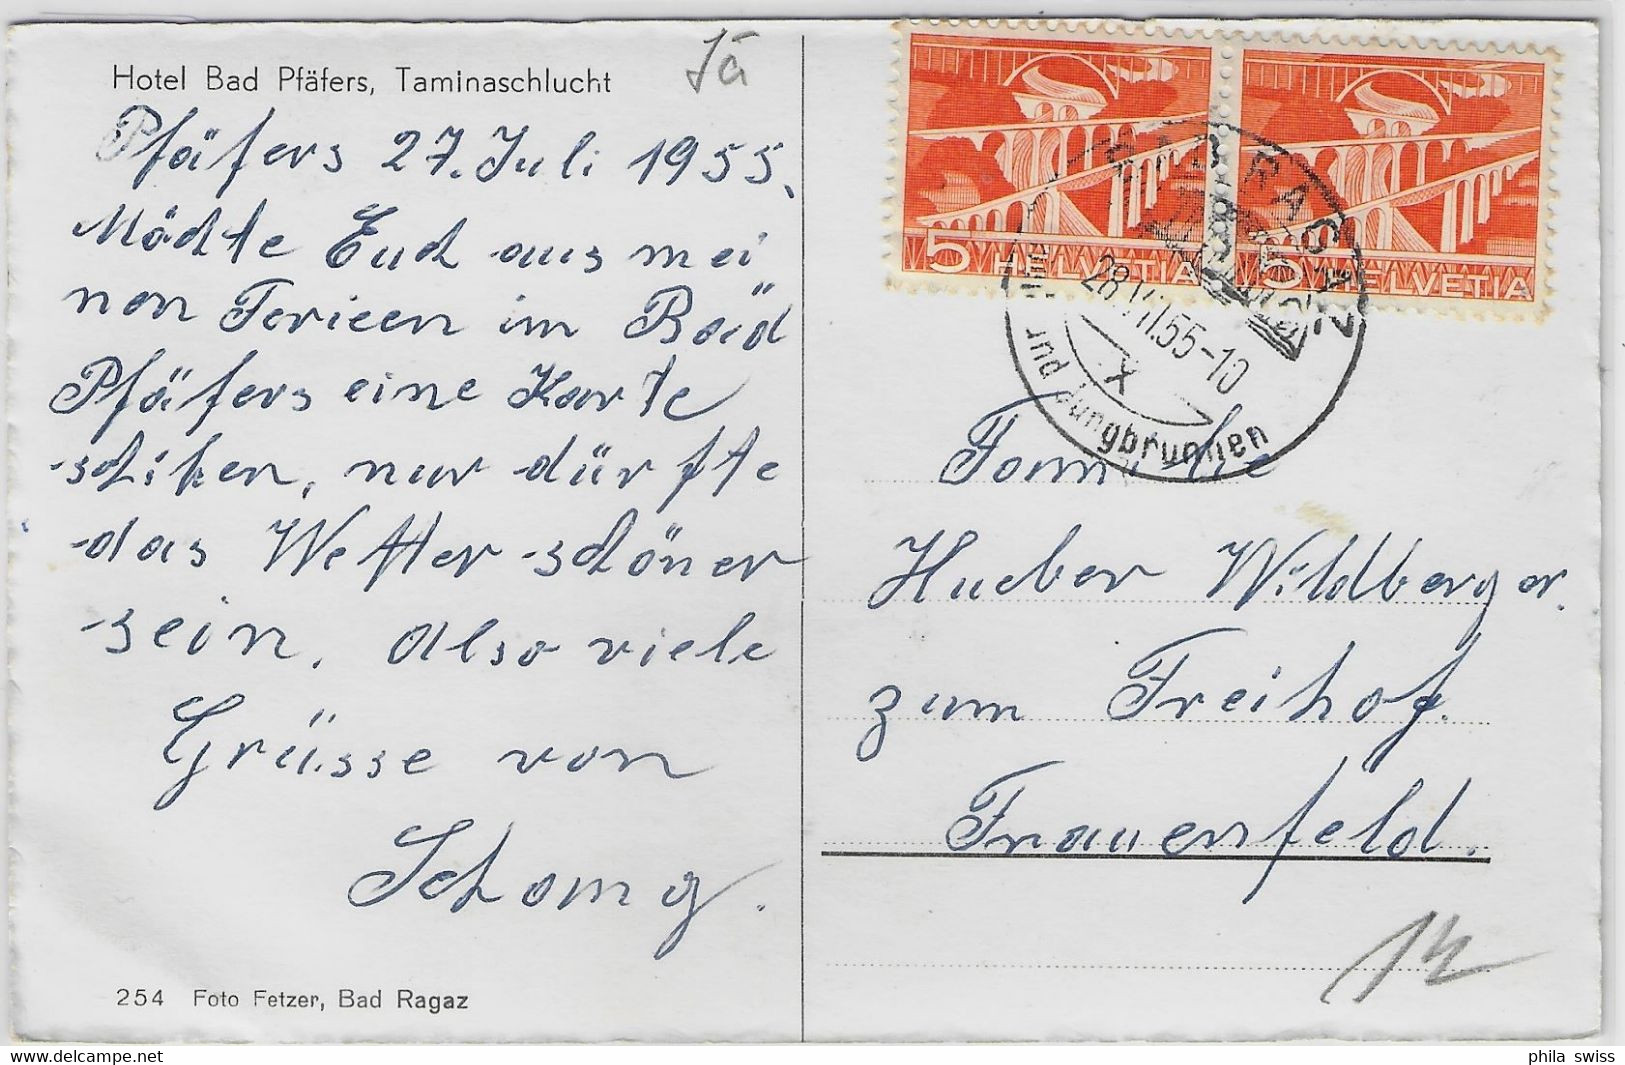 Hotel Bad Pfäfers, Taminaschlucht
Jä
Pfäfers 27. Juli 1955.
Möchte Euch aus mei
nen Ferieen im Bad
Pfäfers eine Karte
schiken, nur dürfte
das Wetter schöner
sein. Also viele
Grüsse von
254 Foto Fetzer, Bad Ragaz
5 HELVETIA
5 HELVETIA
BAD RAGAZ
28.VII.55-10
X
und Jungbrunnen
Familie
Hueber Wildberger.
zum Freihof.
Frauenfeld.
phila swiss